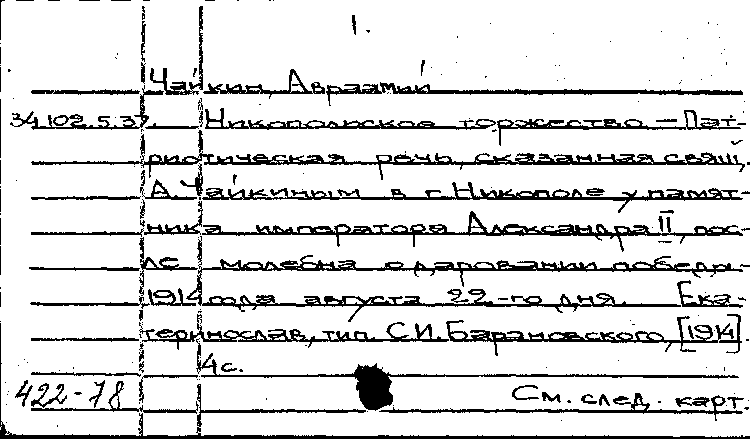 1.
Чайкин, Авраамий
34.102.5.37. Никопольское торжество – Пат-
риотическая речь, сказанная свящ.
А. Чайкиным в г. Никополе у памят-
ника императора Александра II, пос-
ле молебна о даровании победы –
1914 года августа 22-го дня. Ека-
теринослав, тип. С.И. Барановского, [1914].
4 с.
422-78 См. след. карт.